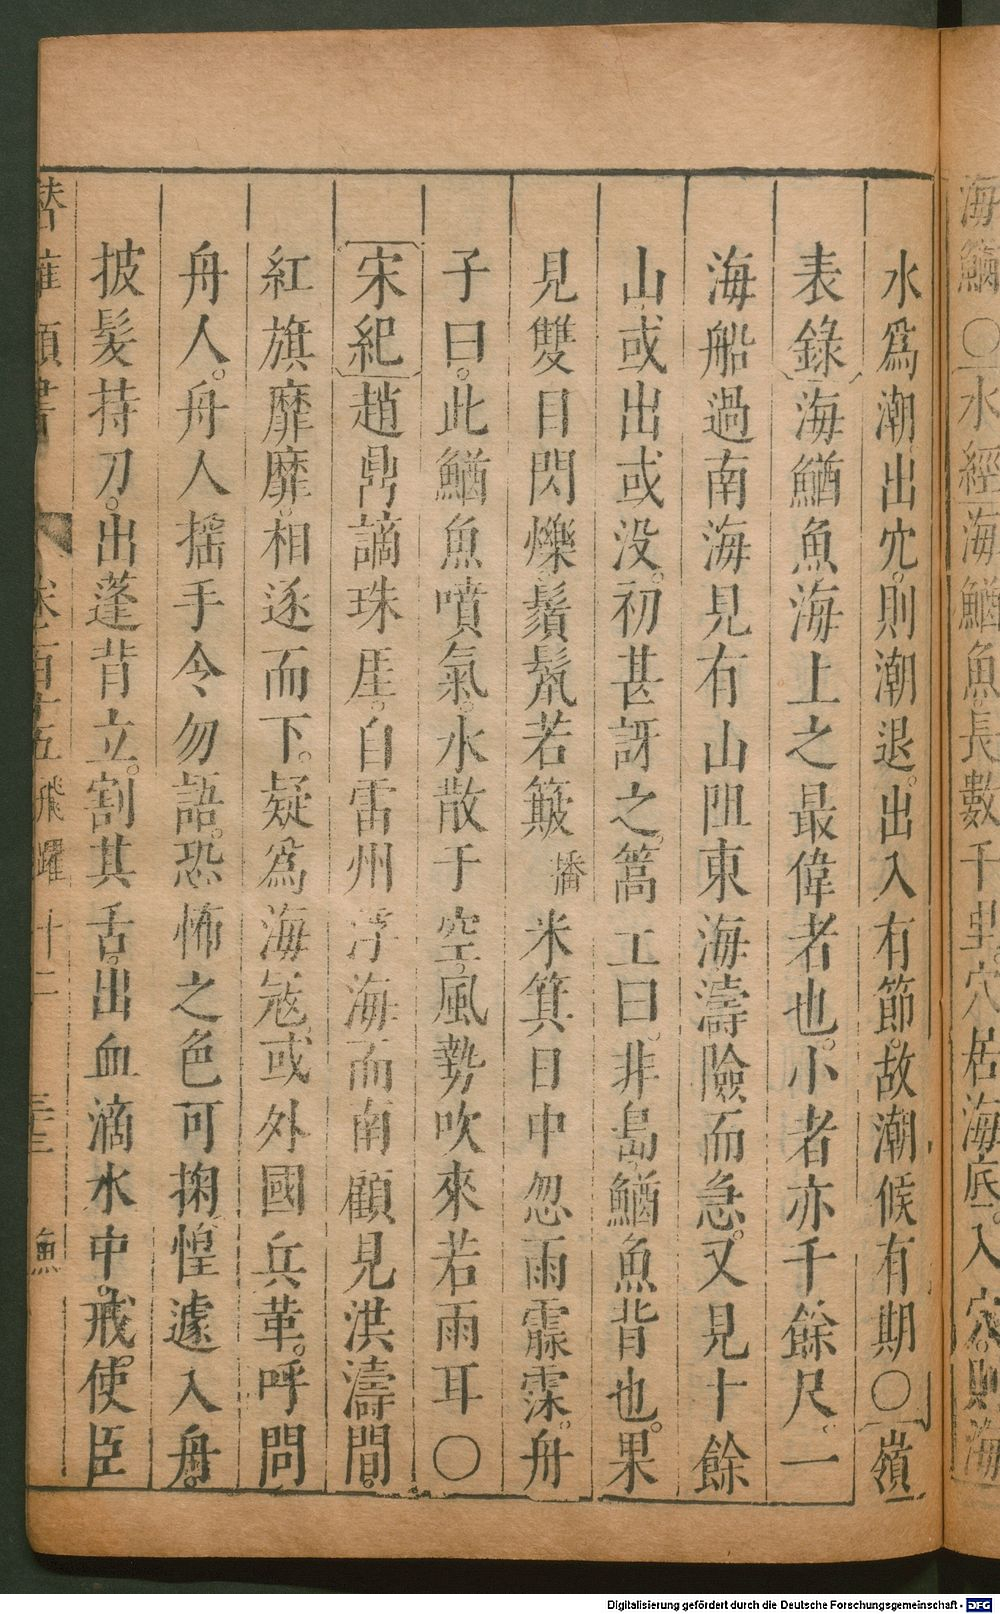 海鰌○水經海鰌魚長數千里穴居海底入穴則海
水爲潮出穴則潮退出入有節故潮候有期○嶺
表錄海鰌魚海上之最偉者也小者亦千餘尺一
海船過南海見有山阻東海濤險而急又見十餘
山或出或没初甚訝之篙工曰非島鰌魚背也果
見雙目閃爍鬚鬣若簸播米箕日中忽雨霡霂舟
子曰此鰌魚噴氣水散于空風勢吹來若雨耳○
宋紀趙鼎謫珠厓自雷州浮海而南顧見洪濤間
紅旗靡靡相逐而下疑爲海寇或外國兵革呼問
舟人舟人摇手令勿語恐怖之色可掬惶遽入舟
披髮持刀出蓬背立割其舌出血滴水中戒使臣
潛確類書 卷百十五 飛躍十二 三三 魚
Digitalisierung gefördert durch die Deutsche Forschungsgemeinschaft - DFG